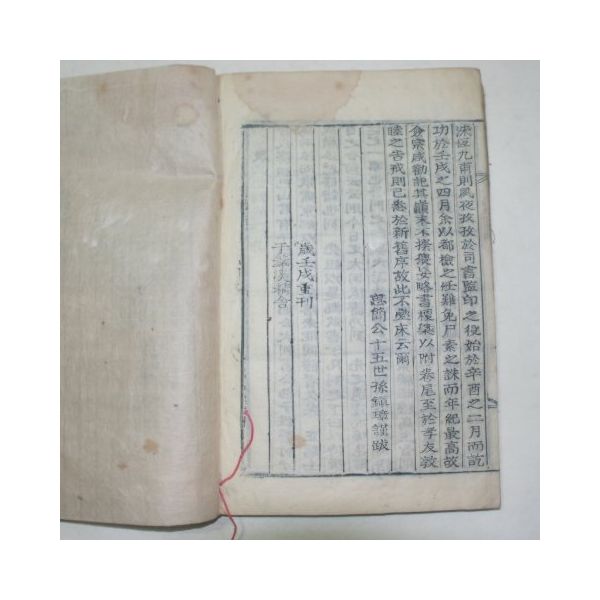 洙恒九甫則夙夜孜孜於司書監印之役始於辛酉之二月而訖
功於壬戌之四月余以都檢之任難免尸素之誅而年紀最高故
僉宗咸勸記其顚末不揆僣妄略書梗槩以附卷尾至於孝友敦
睦之告戒則已悉於新舊序故此不疊床云爾
簡公十五世孫鎭璋謹跋
歲壬戌重刊
于